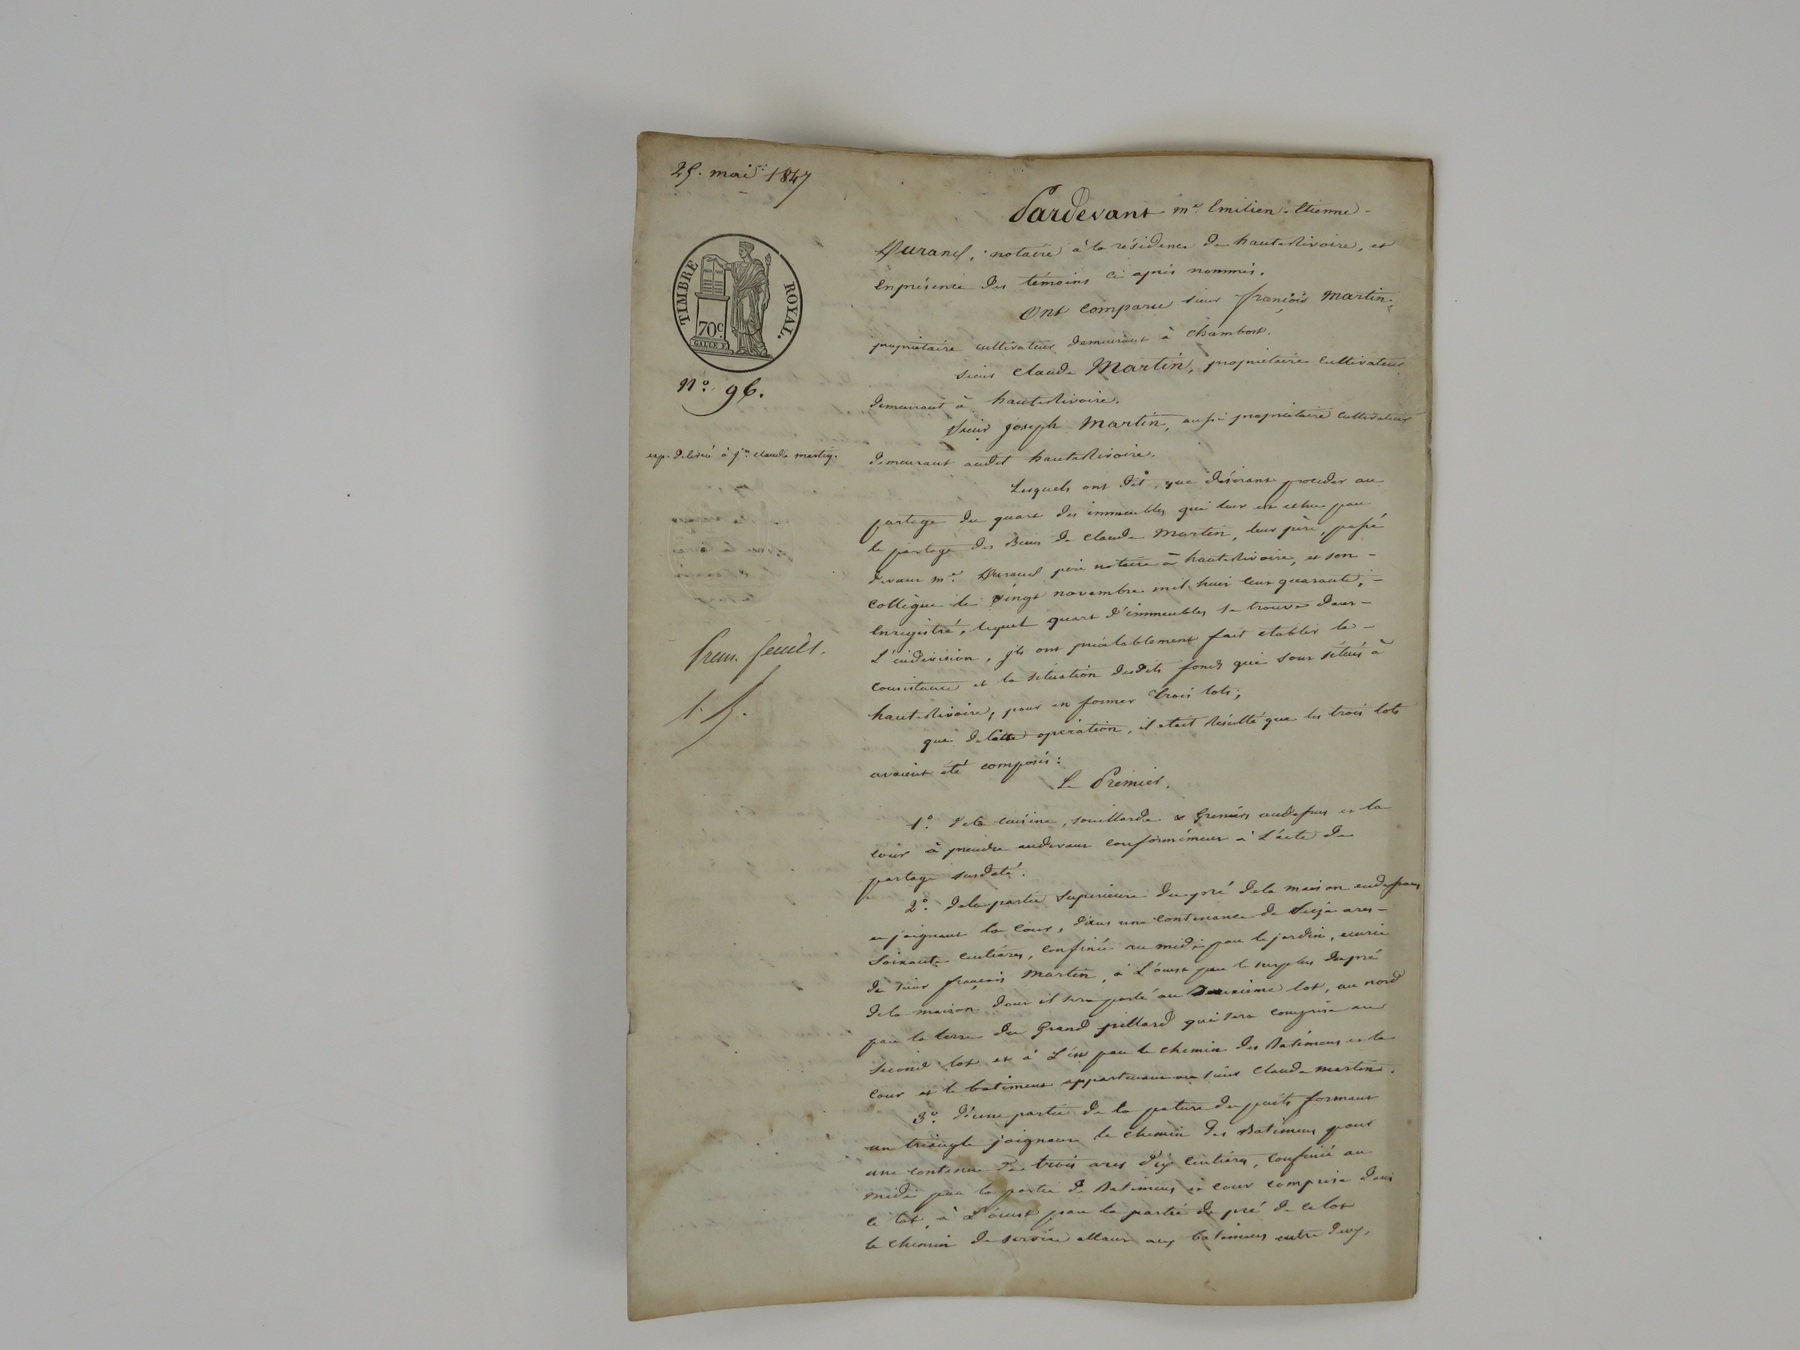 25. mai 1847
TIMBRE ROYAL.
70c
GALLE F.
N.o 96.
exp. délivré à jn claude martin.
prem. feuillet.
Pardevant me Emilien-Etienne-
Durand, notaire à la résidence de hauterivoire, et
enprésence des témoins ci après nommés.
Ont comparu sieur françois Martin,
propriétaire cultivateur demeurant à Chambost.
Sieur Claude Martin, propriétaire cultivateur
demeurant à hauterivoire.
Sieur joseph Martin, aussi propriétaire cultivateur
demeurant audit hauterivoire.
Lesquels ont dit que désirant procéder au
partage du quart des immeubles qui leur est echu par
le partage des Biens de Claude Martin, leur père, passé
devant me Durand père notaire à hauterivoire, et son-
collègue le vingt novembre mil huit cent quarante,-
enregistré, lequel quart d'immeubles se trouve dans-
L'indivision, ils ont préalablement fait etablir la-
consistance et la situation desdits fonds qui sont situés à
hauterivoire, pour en former trois lots;
que de cette opération, il etait résulté que les trois lots
avaient été composés:
Le Premier.
1o. Dela cuisine, souillarde & Greniers audessus et la
cour à prendre audevant conformément à L'acte de
partage susdaté.
2o. dela partie supérieure du pré dela maison
en joignant la cour, dans une contenance de seize ares-
soixante centiares, confinée au midi par le jardin, écurie
de sieur françois Martin, à L'ouest par le surplus du pré
dela maison dont il sera parlé au Deuxième lot, au nord
par la terre du Grand pillard qui sera comprise au
second lot et à L'est par le chemin des Batimens et la
cour et le batiment appartenant au sieur Claude martin.
3o. d'une partie de la pature du puits formant
un triangle joignant le chemin des Batimens pour
une contenue de trois ares dix centiares, confinée au
midi par la partie de Batimens et cour comprise dans
ce lot, à L'ouest par la partie de pré de ce lot
le chemin de service allant aux batimens entre deux,